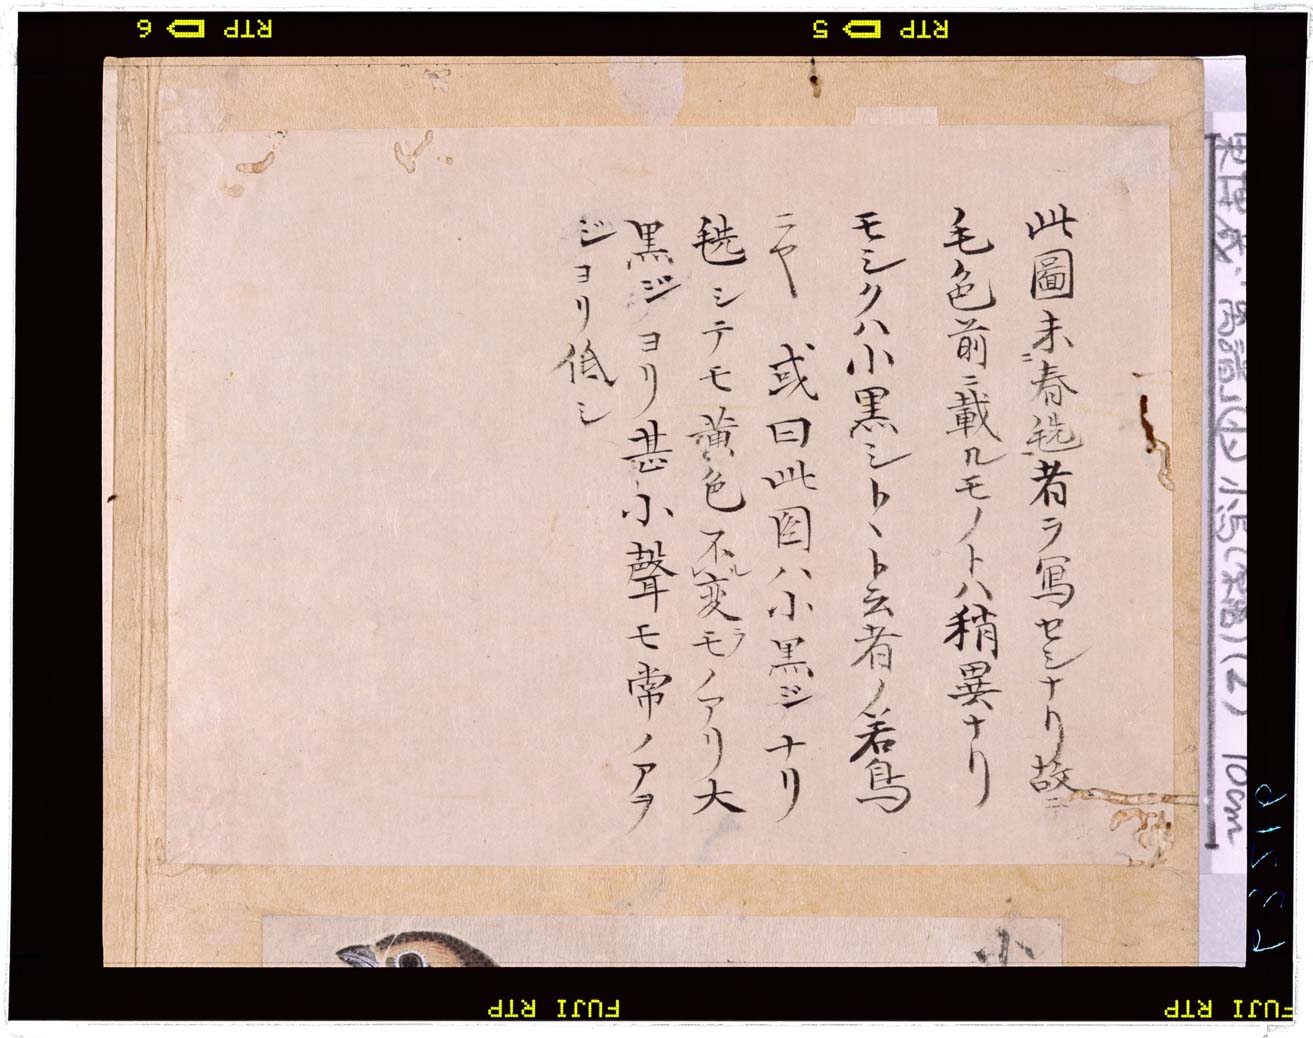 此圖未春毨者ヲ寫セシナリ故ニ
毛色前ニ載ルモノトハ稍異ナリ
モシクハ小黒シトヽト云者ノ若鳥
ニヤ　或曰此圖ハ小黒ジナリ
毨シテモ黄色不変ルモノアリ大
黒ジヨリ甚小聲モ常ノアヲ
ジヨリ低シ
小
10cm
RTP 5
RTP 6
FUJI RTP
FUJI RTP